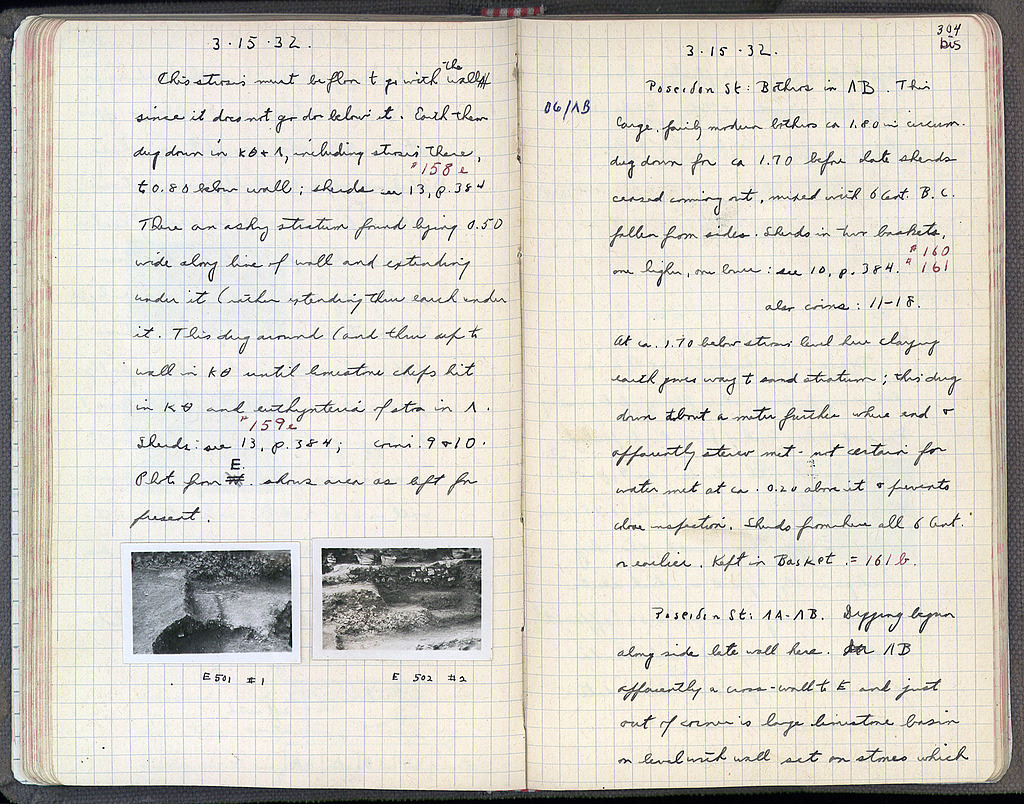 3·15·32.
This strosis must be floor to go with the wall
since it does not go down below it. Earth then
dug down in KΘ + Λ, including strosis there,
#158e
to 0.80 below wall; sherds see 13, p. 384
There an ashy stratum found lying 0.50
wide along line of wall and extending
under it (rather extending thru earth under
it. This dug around (and then up to
wall in KΘ until limestone chips hit
in KΘ and euthynteria of stoa in Λ.
#159e
Sherds: see 13, p. 384; coins: 9 & 10.
Photo from E. shows area as left for
present.
E 501 #1
E 502 #2
304
bis
3·15·32.
06/ΛB
Poseidon St: Bothros in ΛB. This
large, fairly modern bothros ca 1.80 in circum.
dug down for ca 1.70 before late sherds
ceased coming out, mixed with 6 Cent. B.C.
fallen from sides. Sherds in two baskets,
#160
one higher, one lower: see 10, p. 384. #161
also coins: 11-18.
At ca. 1.70 below strosis level here clayey
earth gives way to sand stratum; this dug
down about a meter further where end &
apparently stereo met - not certain for
water met at ca. 0.20 above it & prevents
close inspection. Sherds from here all 6 Cent.
or earlier. Kept in Basket. = 161b.
Poseidon St: ΛA-ΛB. Digging begun
along side late wall here. ΛB
apparently a cross-wall to E and just
out of corner is large limestone basin
on level with wall set on stones which